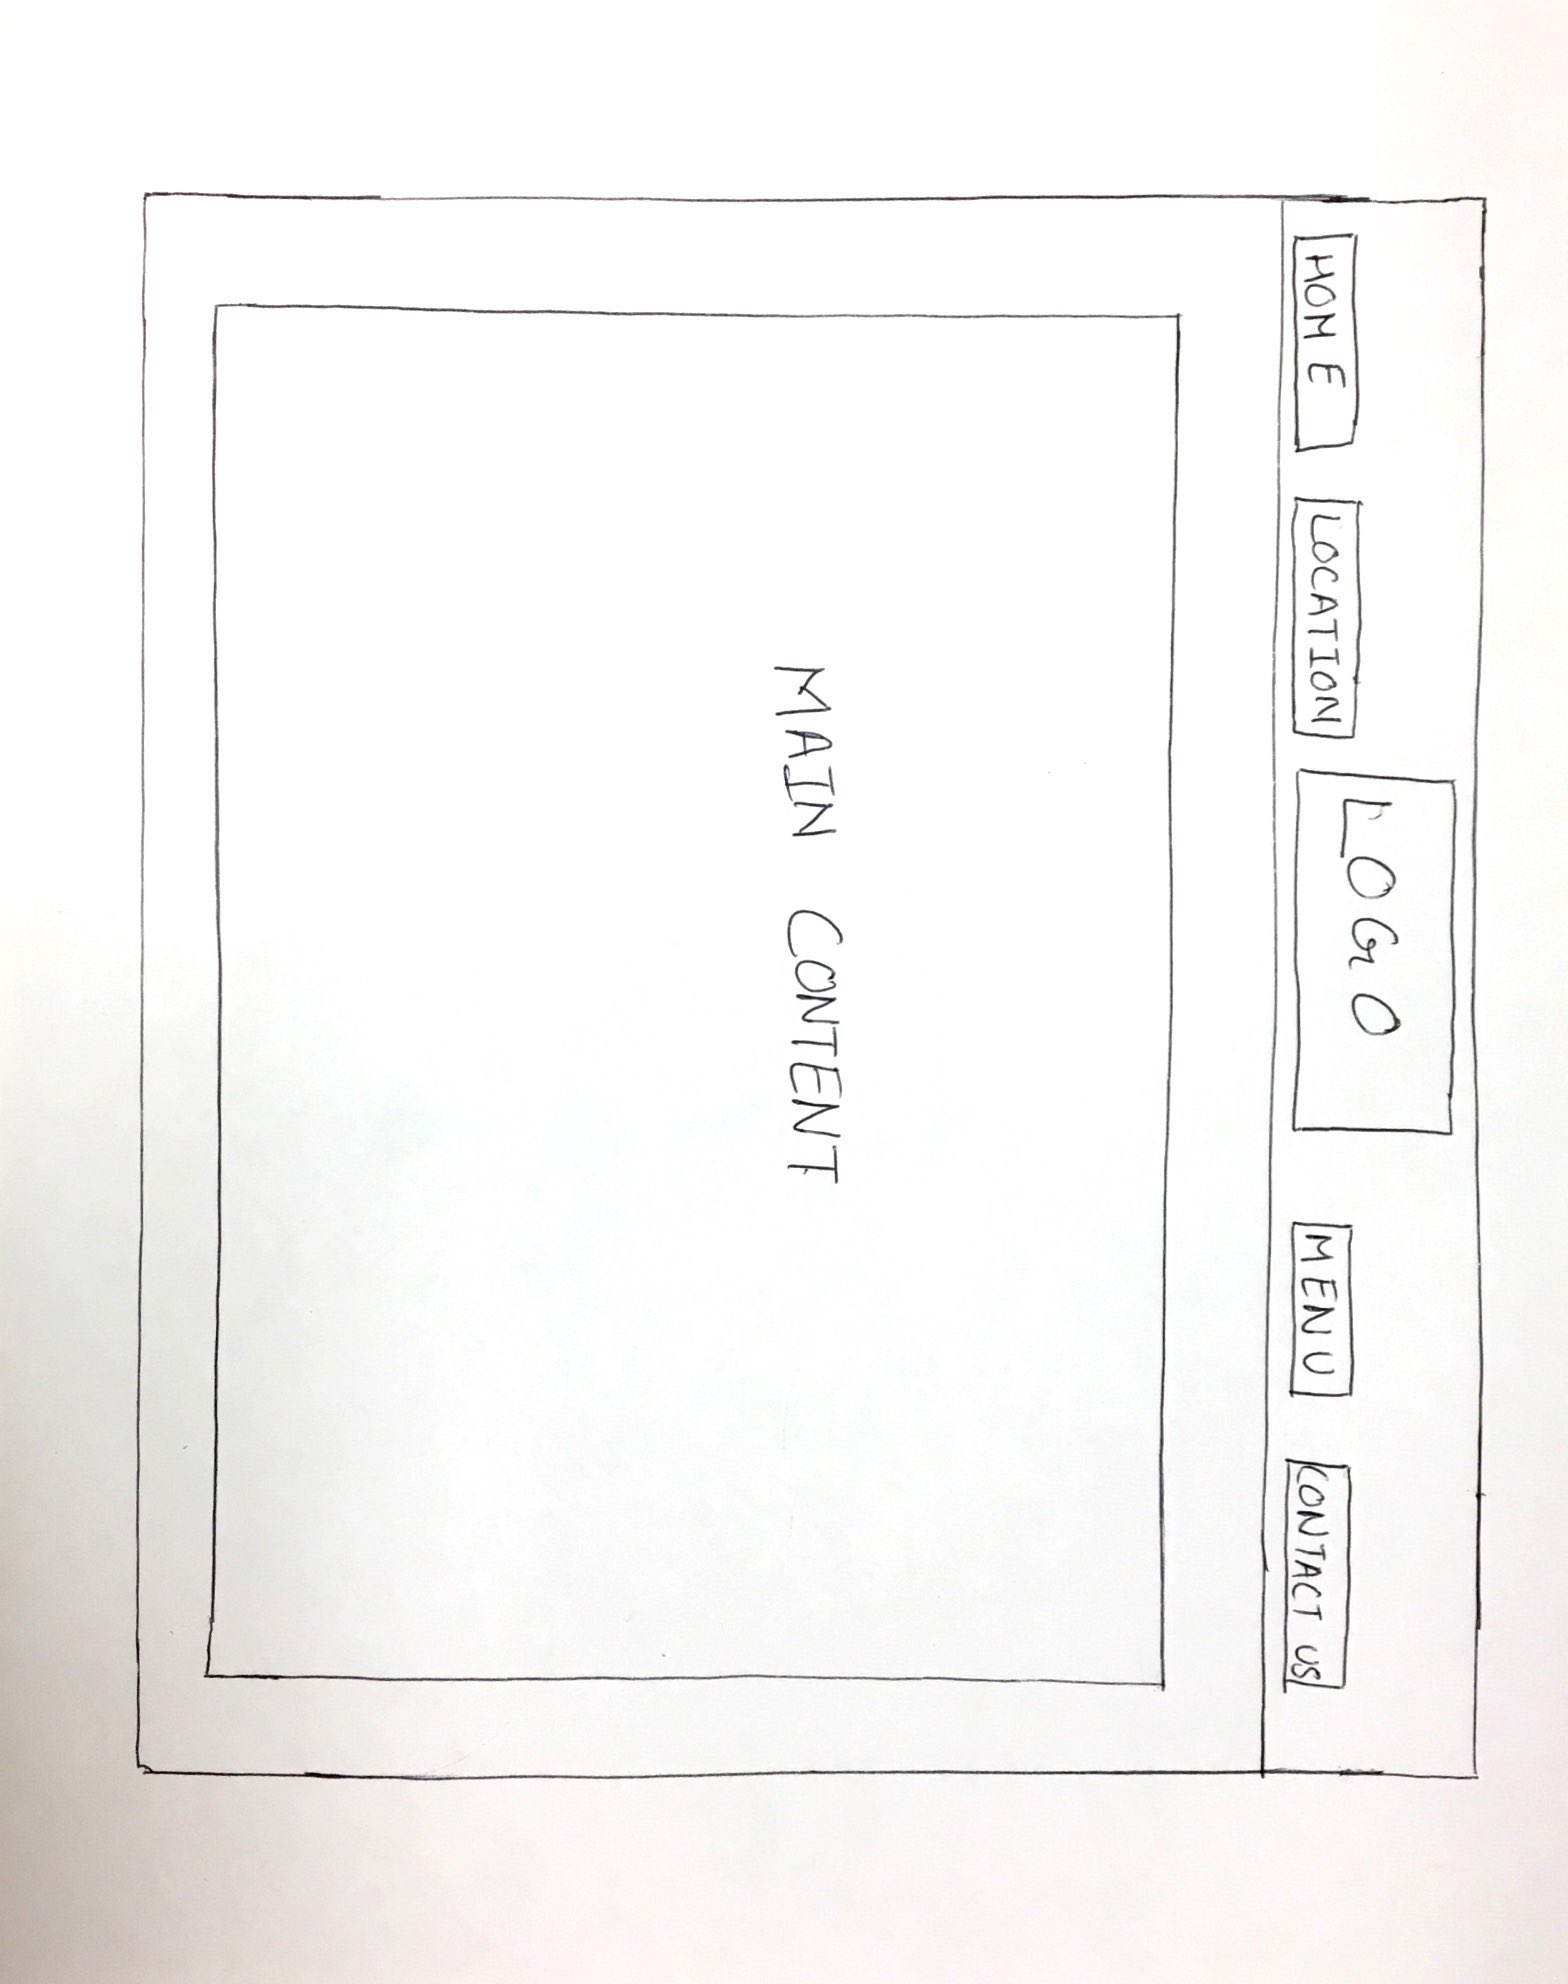 HOME
LOCATION
LOGO
MENU
CONTACT US
MAIN CONTENT